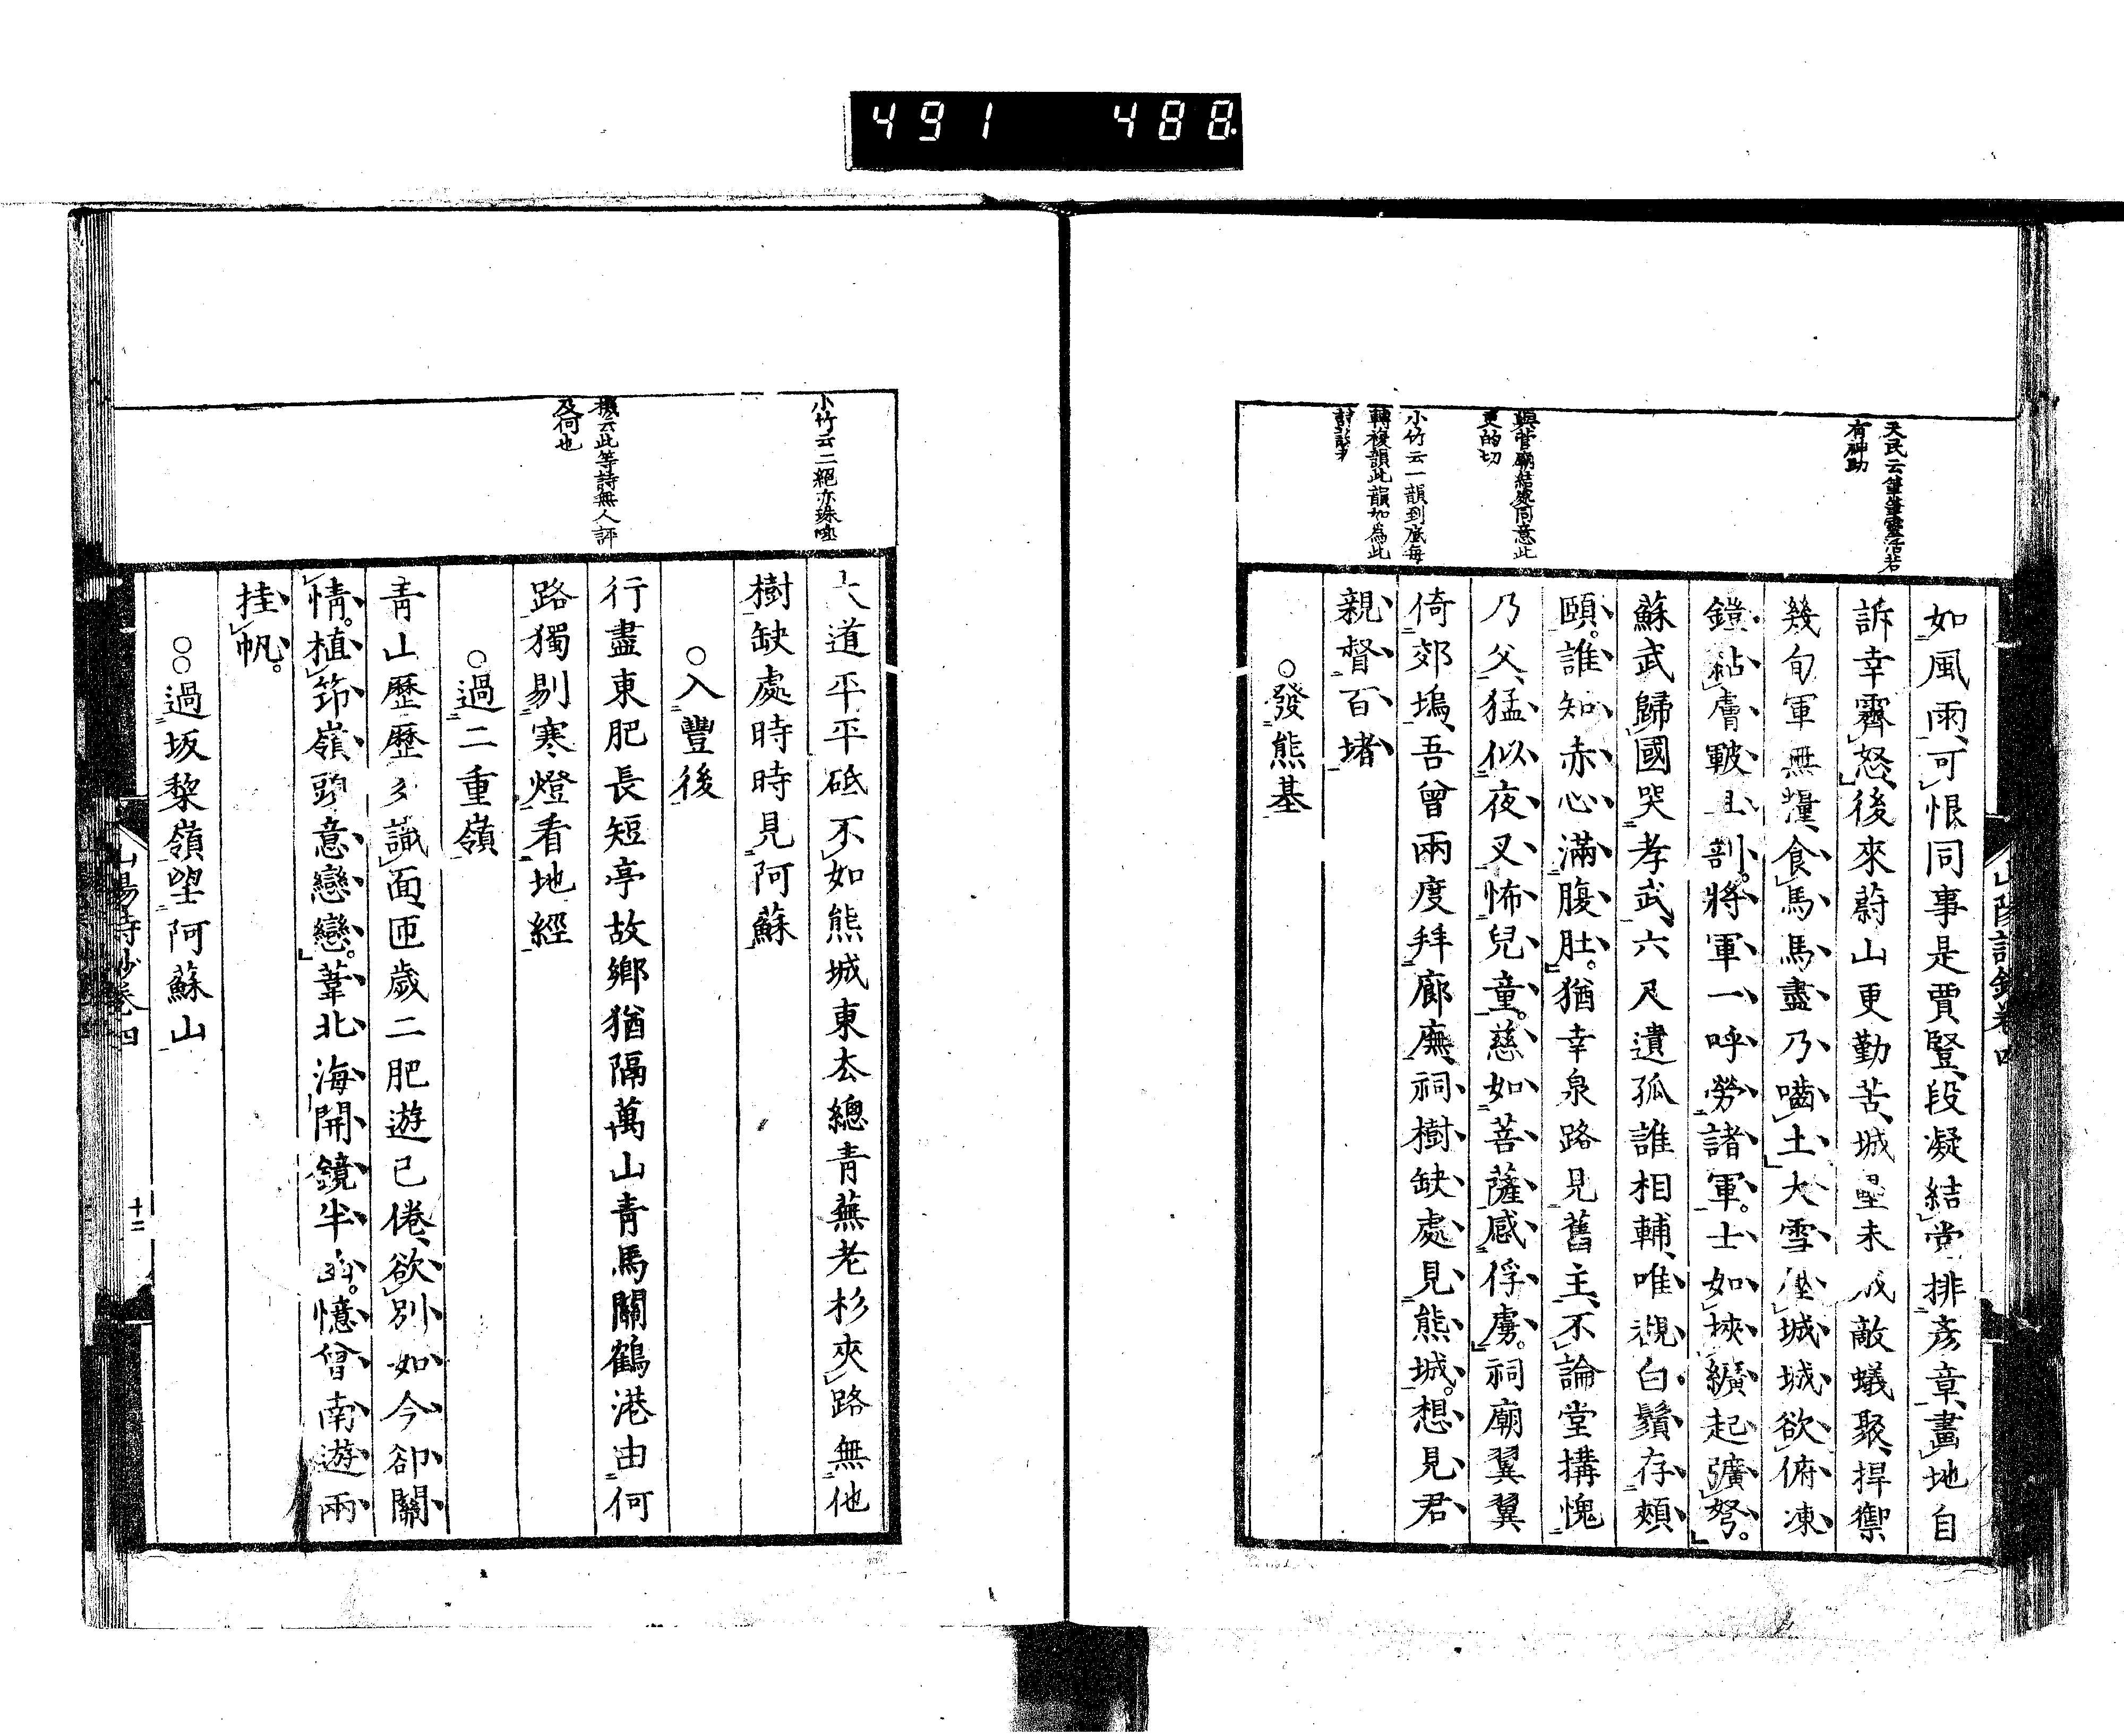 491 488
天民云筆筆靈活若
有神助
與菅廟結處同意此
更的切
小竹云一韻到底每
轉複韻此韻如為此
如風雨可恨同事是賈豎段凝結黨排彦章畫地自
訴幸霽怒後來蔚山更勤苦城壘未成敵蟻聚捍禦
幾旬軍無糧食馬馬盡乃嚙土大雪壓城城欲俯凍
鎧粘膚皸且剖將軍一呼勞諸軍士如挾纊起彍弩
蘇武歸國哭孝武六尺遺孤誰相輔唯視白鬚存頰
頤誰知赤心滿腹肚猶幸泉路見舊主不論堂搆愧
乃父猛似夜叉怖兒童慈如菩薩感俘虜祠廟翼翼
倚郊塢吾曾兩度拜廊廡祠樹缺處見熊城想見君
親督百堵
○發熊基
山陽詩鈔卷四
小竹云二絕亦珠唾
機云此等詩無人評
及何也
大道平平砥不如熊城東去總青蕪老杉夾路無他
樹缺處時時見阿蘇
○入豐後
行盡東肥長短亭故鄉猶隔萬山青馬關鶴港由何
路獨剔寒燈看地經
○過二重嶺
青山歷歷多識面匝歲二肥遊已倦欲別如今卻關
情植筇嶺頭意戀戀葦北海開鏡半函憶曾南遊兩
挂帆
○○過坂黎嶺望阿蘇山
山陽詩鈔卷四
十二